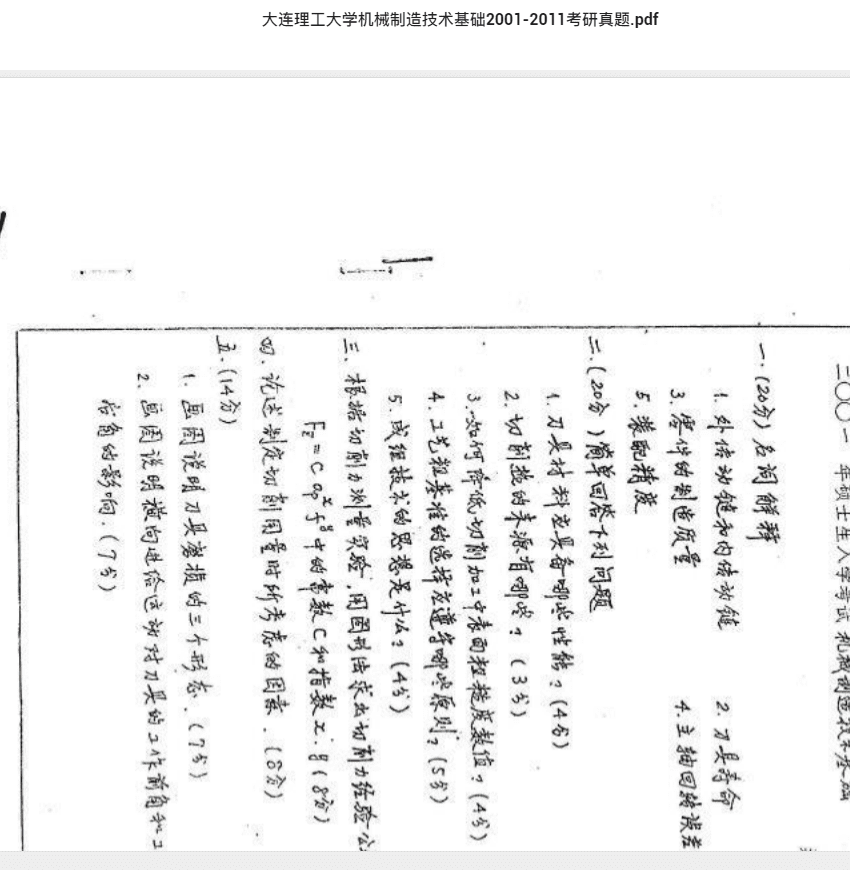 大连理工大学机械制造技术基础2001-2011考研真题.pdf
二〇〇一年硕士生入学考试 机械制造技术基础
一.(20分) 名词解释
1. 外传动链和内传动链 2. 刀具寿命
3. 零件的制造质量 4. 主轴回转误差
5. 装配精度
二.(20分) 简单回答下列问题
1. 刀具材料应具备哪些性能?(4分)
2. 切削热的来源有哪些?(3分)
3. 如何降低切削加工中表面粗糙度数值?(4分)
4. 工艺粗基准的选择应遵守哪些原则?(5分)
5. 成组技术的思想是什么?(4分)
三. 根据切削力测量实验,用图形法求出切削力经验公
Fz=C ap^x f^y 中的常数C和指数x.y(8分)
四. 论述制定切削用量时所考虑的因素.(8分)
五.(14分)
1. 画图说明刀具磨损的三个形态.(7分)
2. 画图说明横向进给运动对刀具的工作前角和工
后角的影响.(7分)